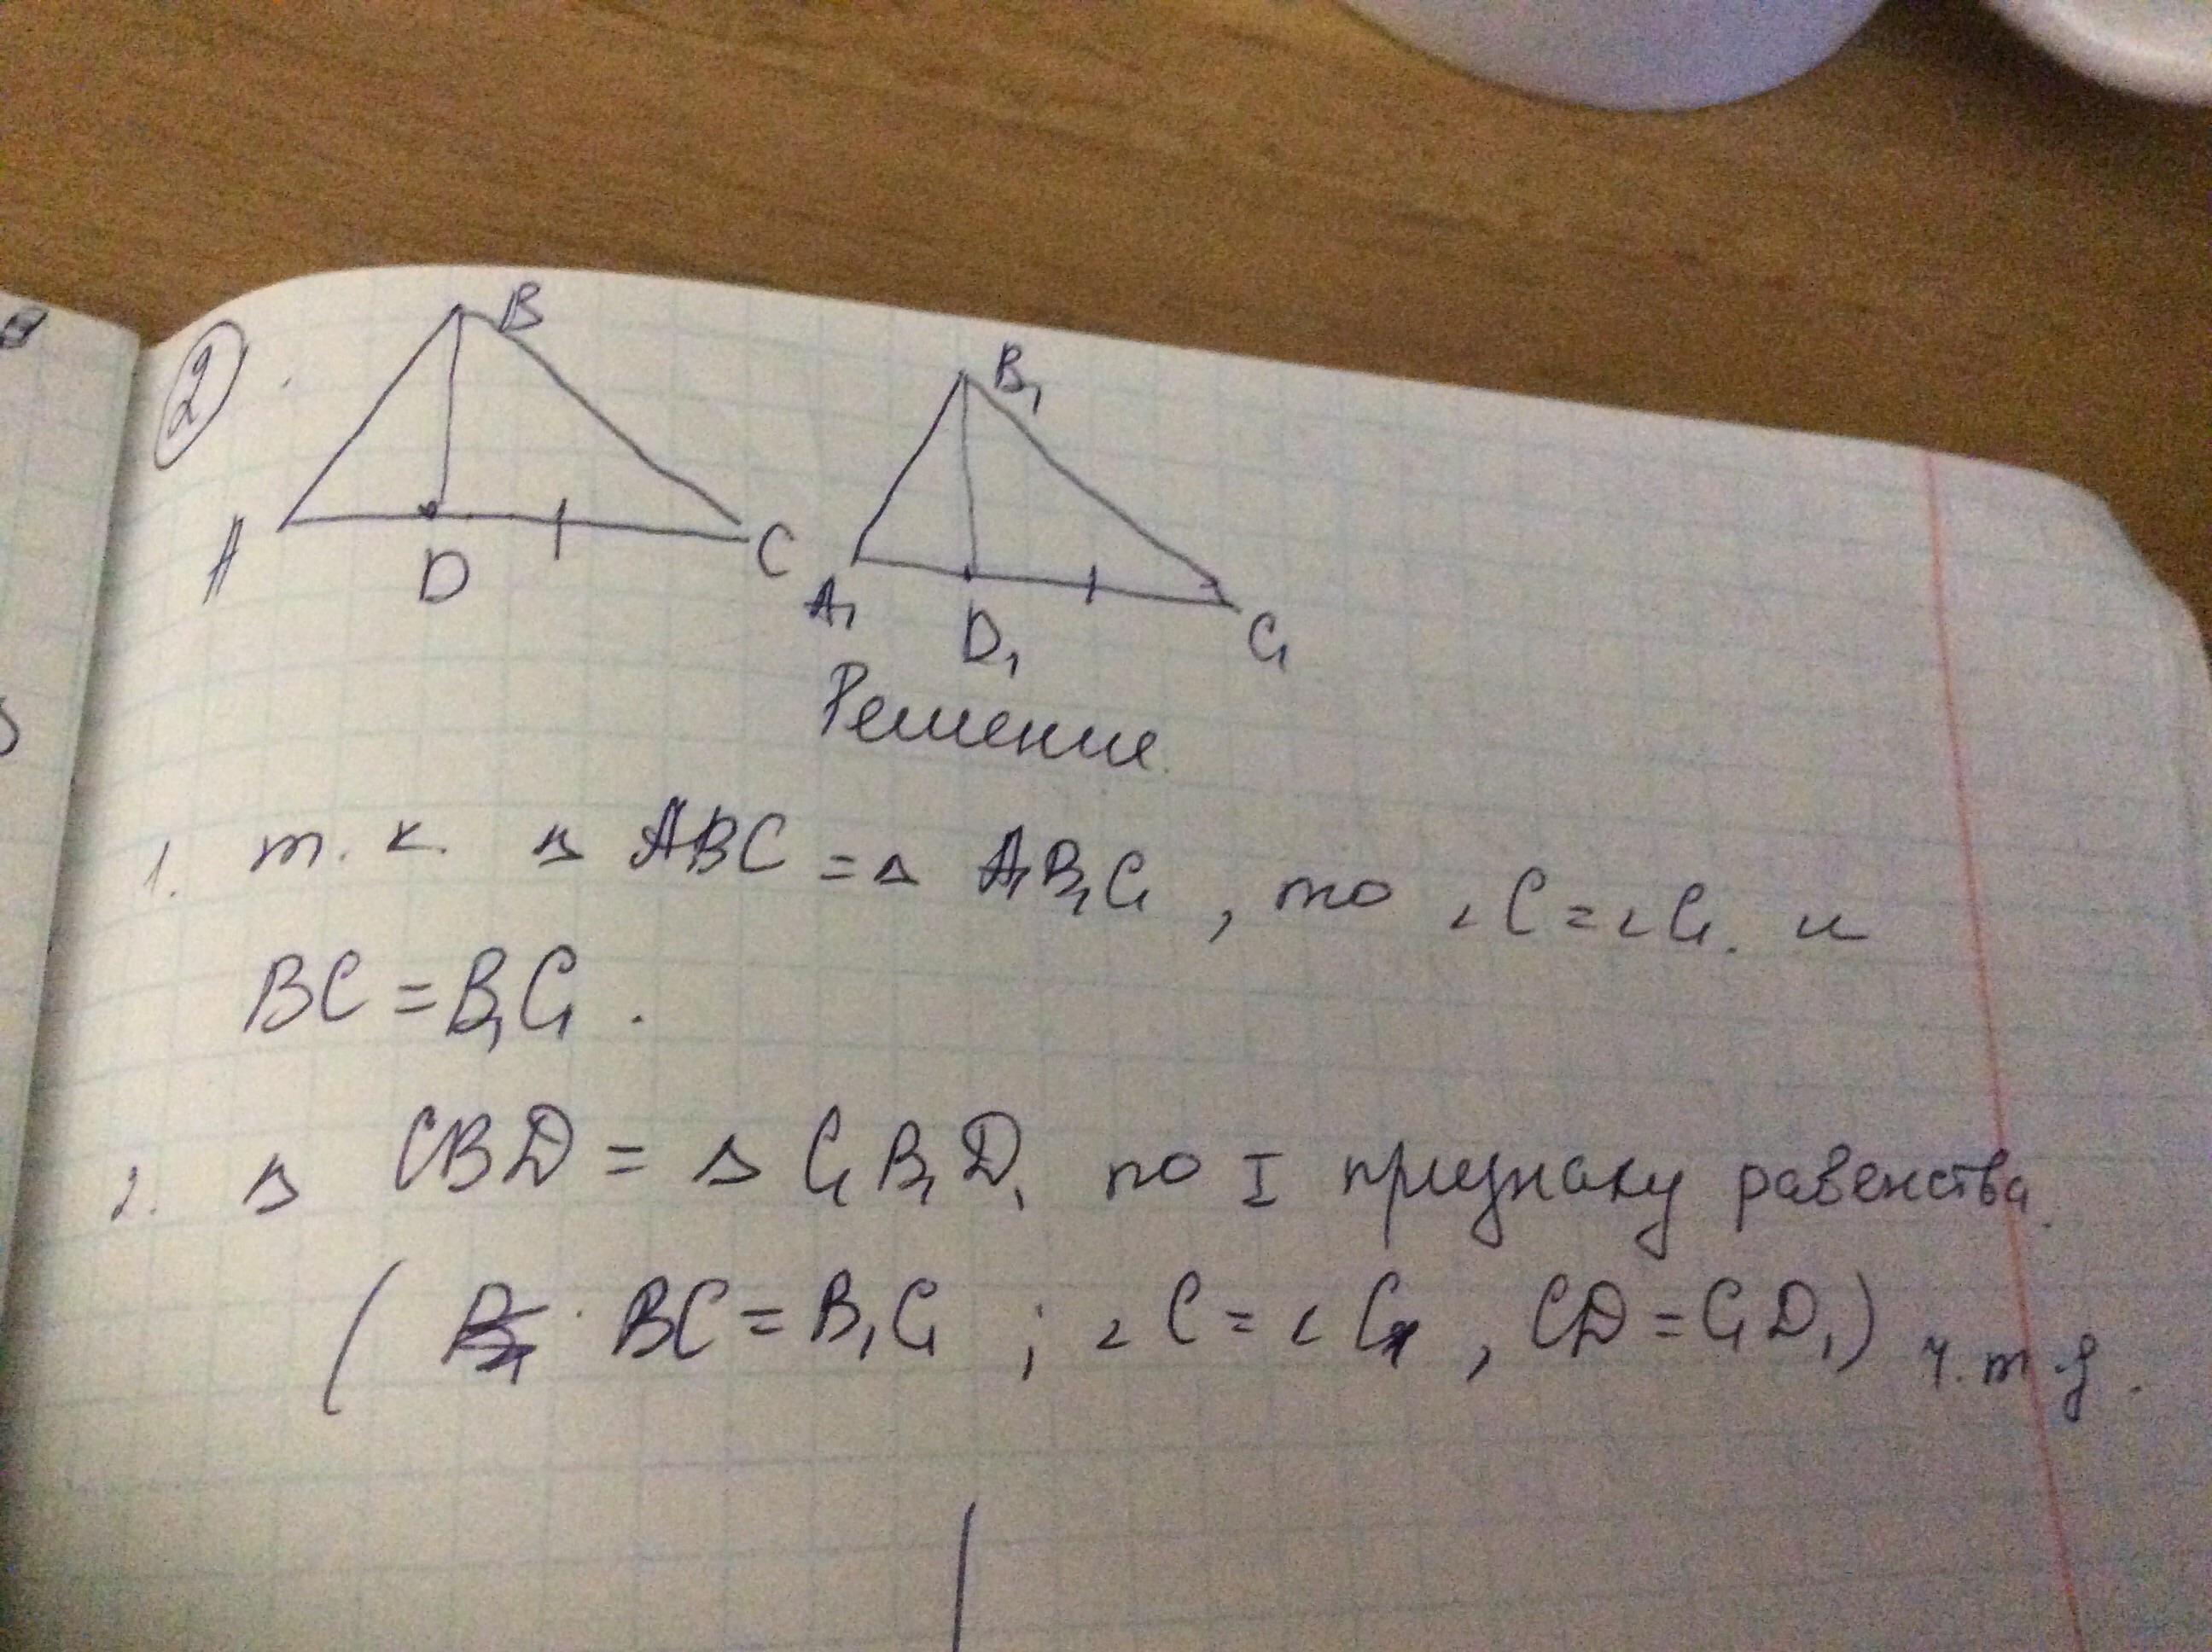 2.
B
B₁
A
D
C
A₁
D₁
C₁
Решение.
1. т. к. △ ABC = △ A₁B₁C₁, то ∠C = ∠C₁. и
BC = B₁C₁.
2. △ CBD = △ C₁B₁D₁ по I признаку равенства.
( BC = B₁C₁ ; ∠C = ∠C₁, CD = C₁D₁) ч.т.д.